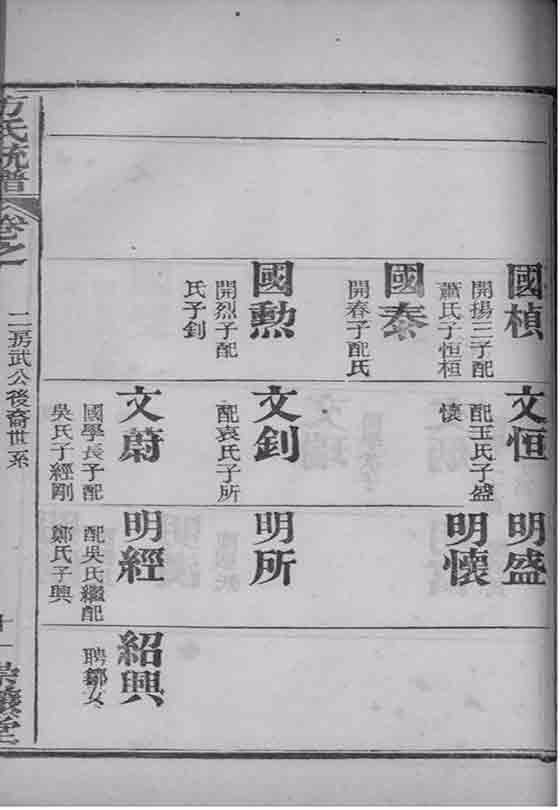 國楨
開揚三子配
蕭氏子恒桓
國泰
開春子配氏
國勲
開烈子配
氏子釗
文恒
配王氏子盛
懷
文釗
配袁氏子所
文蔚
國學長子配
吳氏子經剛
明盛
明懷
明所
明經
配吳氏繼配
鄭氏子興
紹興
聘鄒女
方氏統譜
卷之
二房武公後裔世系
十一